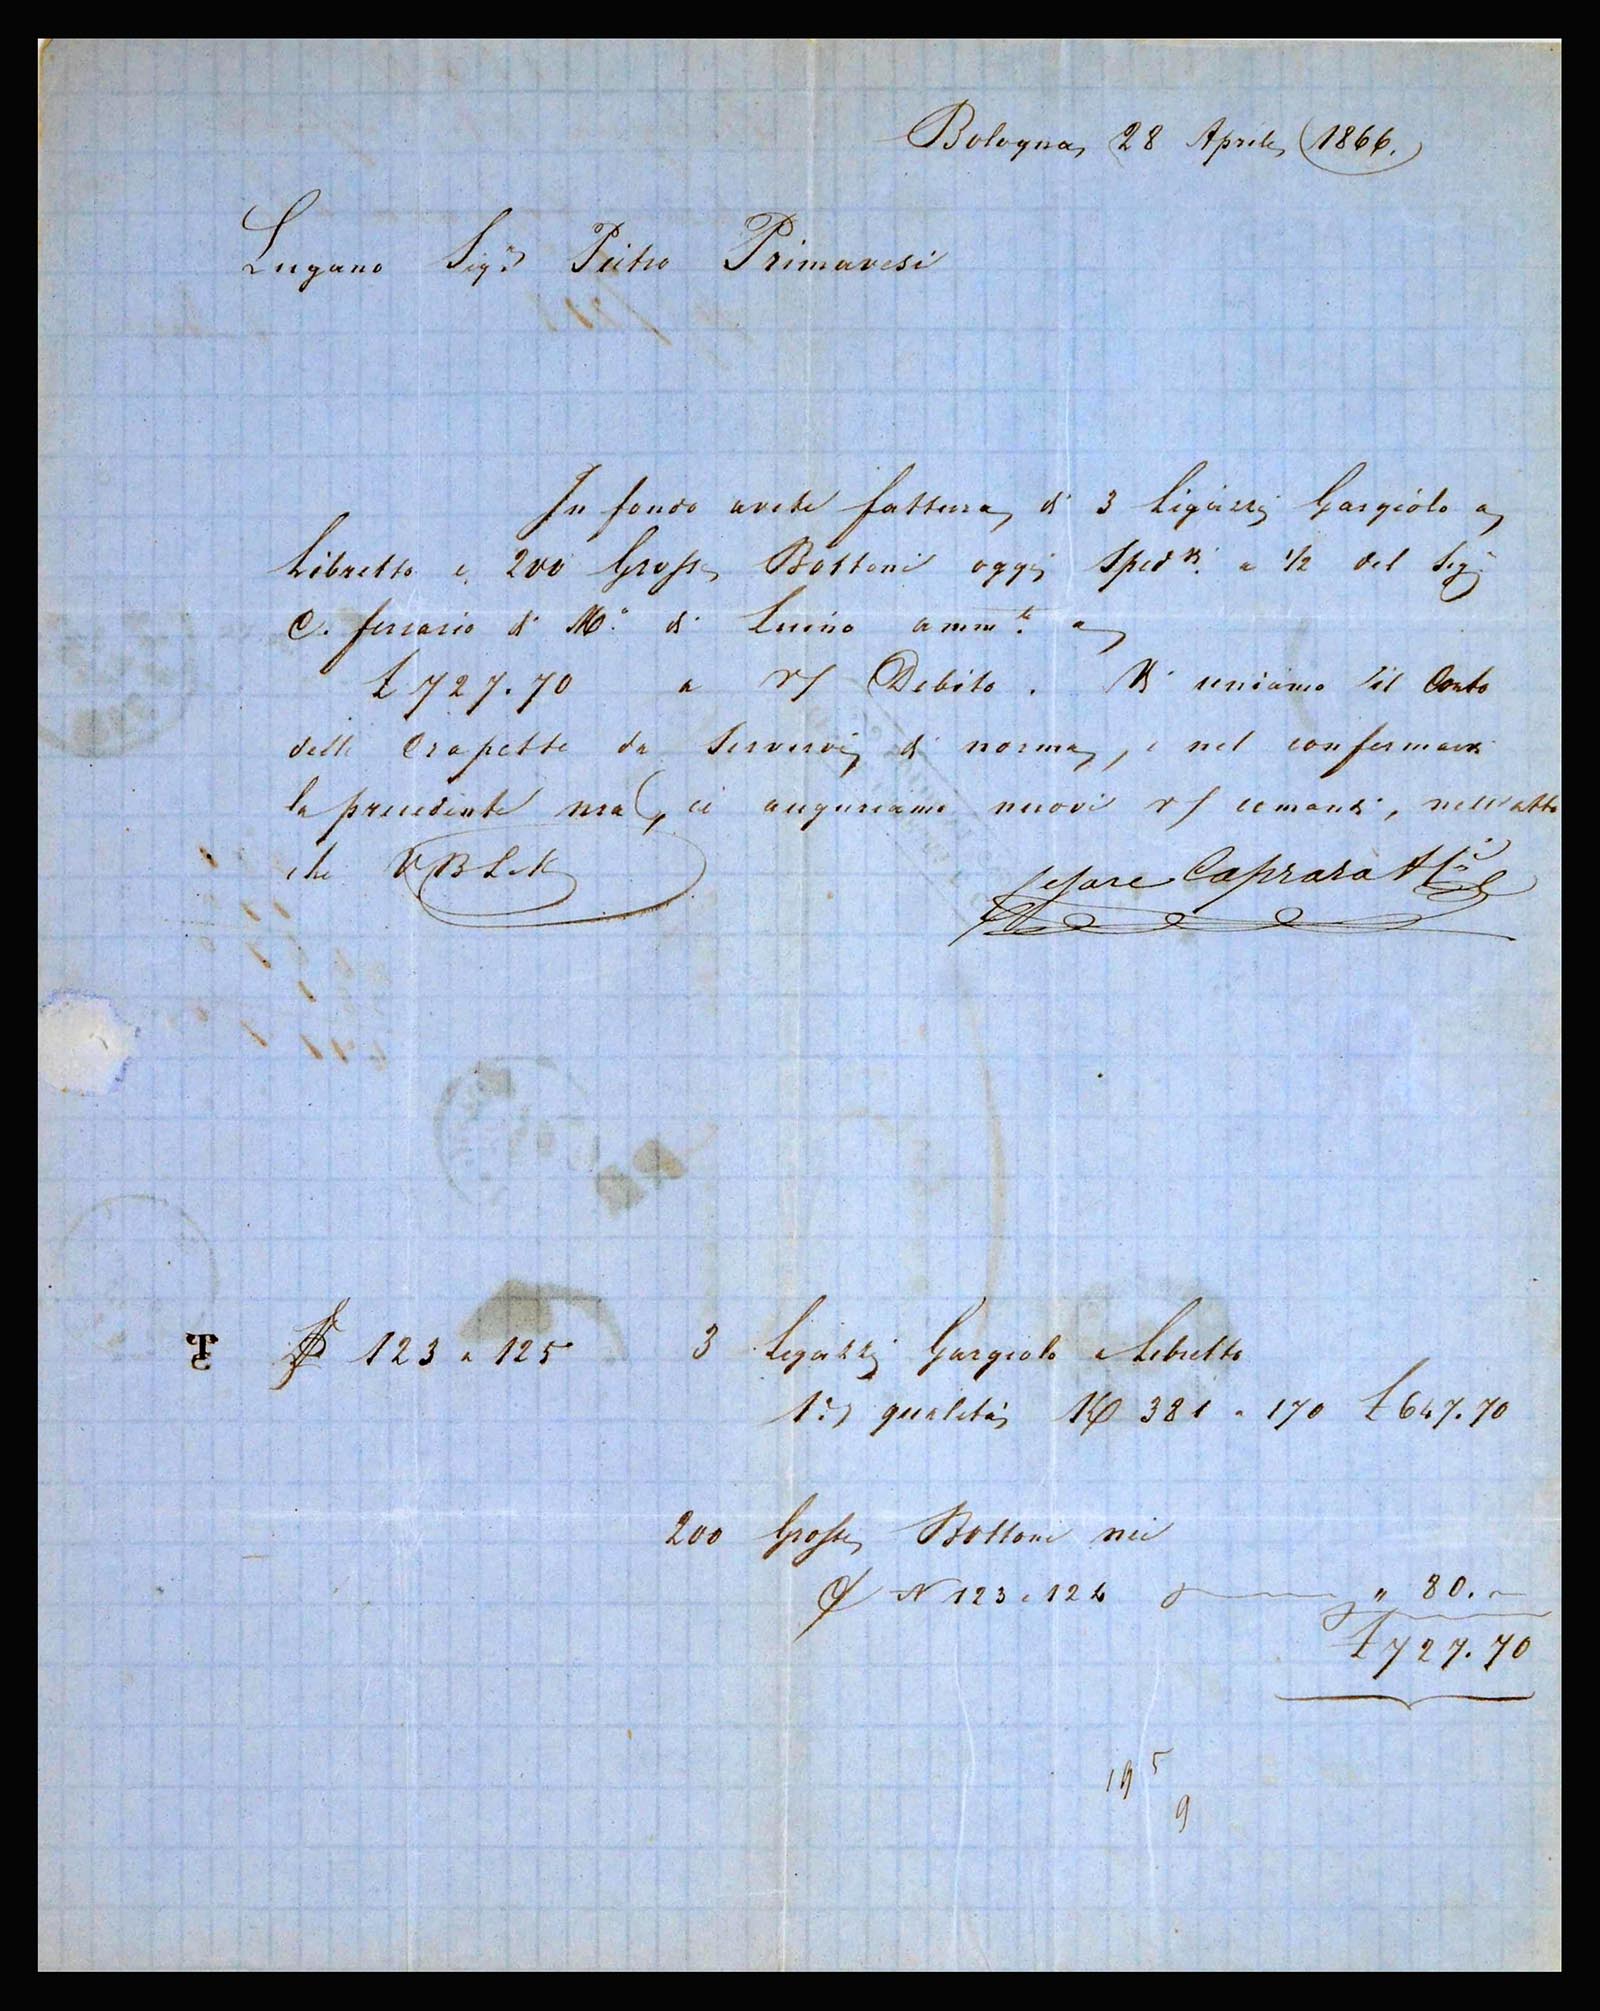 Bologna, 28 Aprile, 1866.
Lugano Sigr Pietro Primavesi
In fondo avete fattura, di 3 Ligazzi Gargiolo a
Libretto e, 200 Grosse Bottoni oggi Spedti a 1/2 del Sigr
C. Ferrario di Mo. di Luino ammte a
£ 727.70 a v/ Debito. Vi uniamo il Conto
delle Crapette da Servirvi di norma, e nel confermarvi
la precedente nra, ci auguriamo nuovi v/ comandi, nell'atto
che VBLM
Cesare Caprara & Ci
P 123 a 125 3 Ligazzi Gargiolo a Libretto
1a qualità K 381 a 170 £ 647.70
200 Grosse Bottoni nei
N 123 e 124 " 80.-
£ 727.70
19 5
9